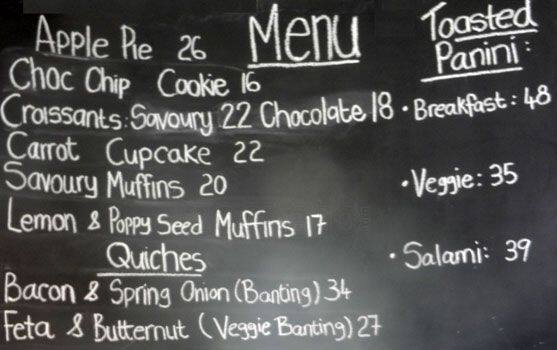 Menu
Apple Pie 26
Choc Chip Cookie 16
Croissants: Savoury 22 Chocolate 18
Carrot Cupcake 22
Savoury Muffins 20
Lemon & Poppy Seed Muffins 17
Quiches
Bacon & Spring Onion (Banting) 34
Feta & Butternut (Veggie Banting) 27
Toasted
Panini:
• Breakfast: 48
• Veggie: 35
• Salami: 39